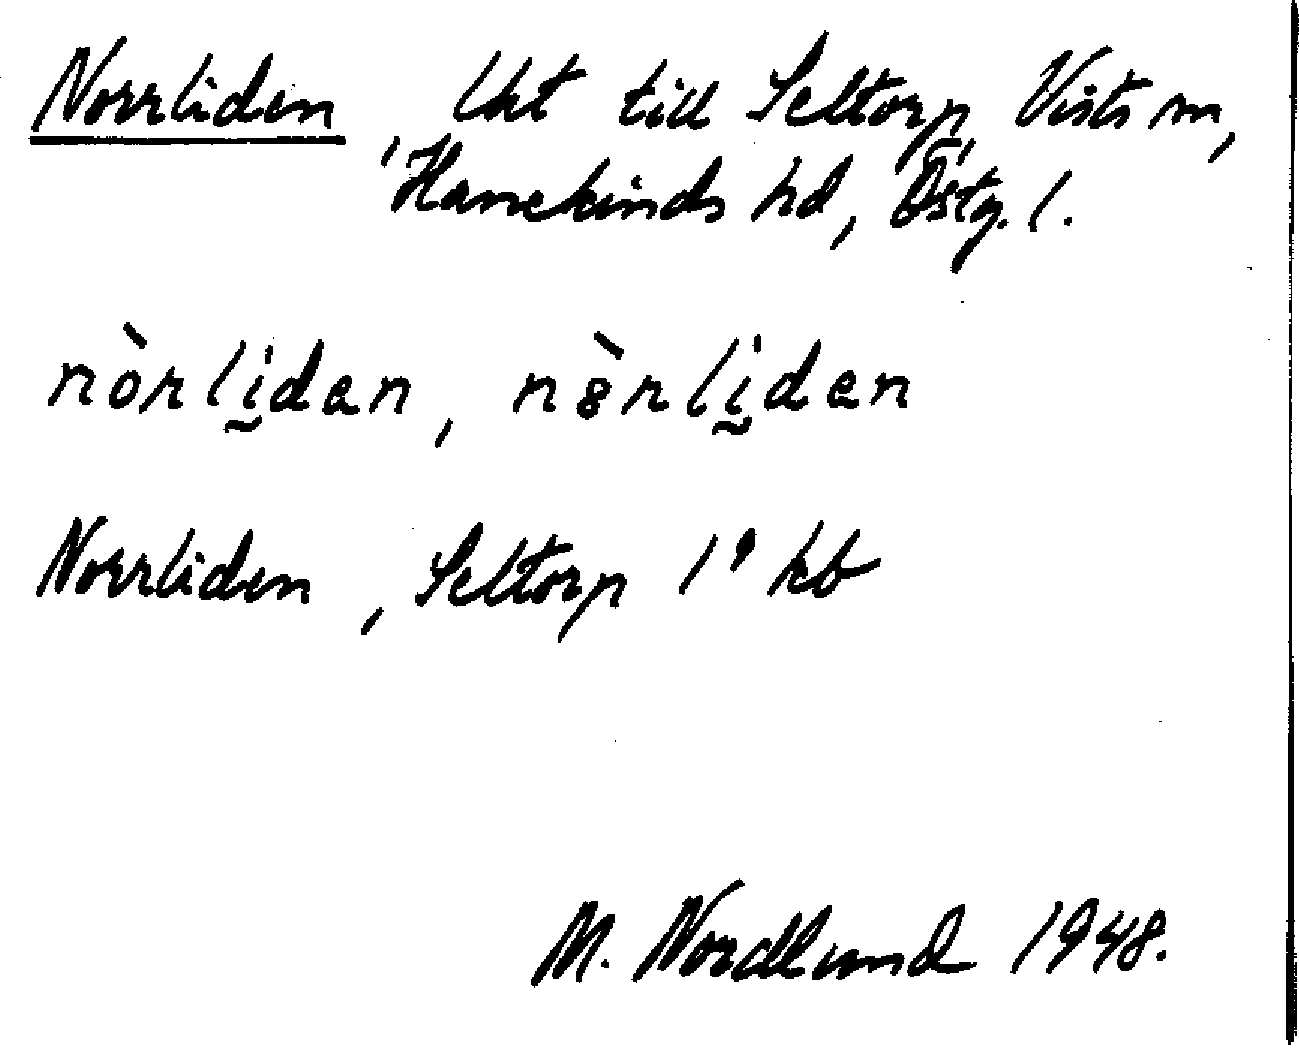 Norrliden, Uкt till Seltorp, Vists sn,
Hanekinds hd, Östg. l.
nòrliden, nòrliden
Norrliden, Seltorp 1° kb
M. Nordlund 1948.